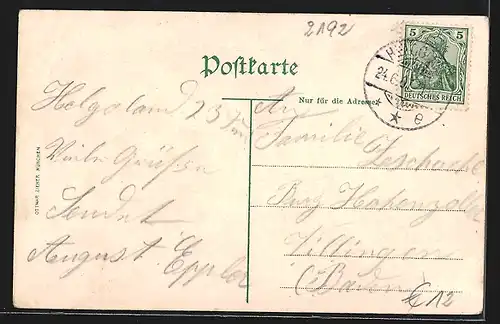 2192
5
DEUTSCHES REICH
24.6.
* * e
Postkarte
Nur für die Adresse
Helgoland 23 Juni
Viele Grüße
Sendet
August Eppler
An
Familie
Burg Hohenzoller
Villingen
(Baden)
€ 12
OTTMAR ZIEHER, MÜNCHEN